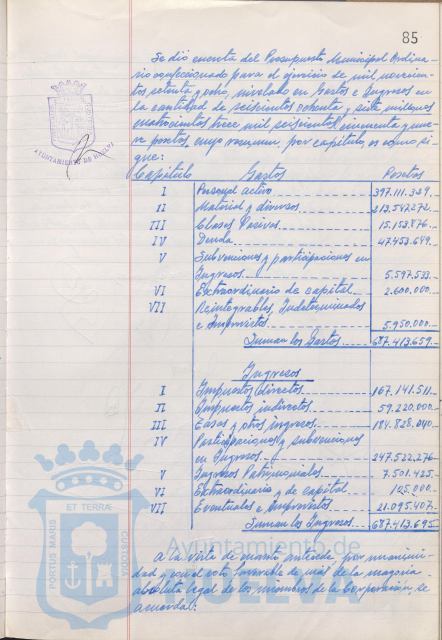 85
Se dió cuenta del Presupuesto Municipal Ordina-
rio confeccionado para el ejercicio de mil novecien-
tos setenta y ocho, nivelado en Gastos e Ingresos en
la cantidad de seiscientos ochenta y siete millones
cuatrocientos trece mil seiscientos cincuenta y nue-
ve pesetas, cuyo resumen por capítulos, es como si-
gue:
AYUNTAMIENTO DE HUELVA
Capítulo Gastos Pesetas
I Personal activo 397.111.329.-
II Material y diversos 213.547.272.-
III Clases Pasivas 15.153.876.-
IV Deuda 47.453.649.-
V Subvenciones y participaciones en
Ingresos 5.597.533.-
VI Extraordinario de capital 2.600.000.-
VII Reintegrables, Indeterminados
e Imprevistos 5.950.000.-
Suman los Gastos 687.413.659.-
Ingresos
I Impuestos directos 167.141.511.-
II Impuestos indirectos 59.220.000.-
III Tasas y otros ingresos 184.828.040.-
IV Participaciones y subvenciones
en Ingresos 247.522.276.-
V Ingresos Patrimoniales 7.501.425.-
VI Extraordinario y de capital 105.000.-
VII Eventuales e Imprevistos 21.095.407.-
Suman los Ingresos 687.413.659
A la vista de cuanto antecede por unanimi-
dad y con el voto favorable de más de la mayoría
absoluta legal de los miembros de la Corporación, se
acuerda:
PORTUS MARIS ET TERRAE CUSTODIA
Ayuntamiento de
HUELVA